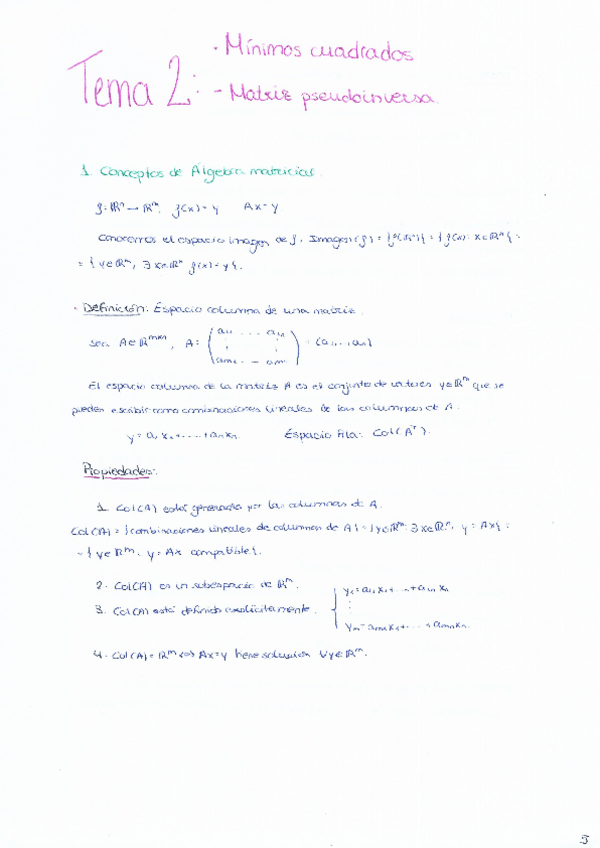 Tema 2:
- Mínimos cuadrados
- Matriz pseudoinversa.
1. Conceptos de Álgebra matricial.
f: ℝⁿ → ℝᵐ, f(x) = y Ax = y
Conocemos el espacio imagen de f. Imagen(f) = {f(ℝⁿ)} = {f(x): x ∈ ℝⁿ} =
= {y ∈ ℝᵐ, ∃ x ∈ ℝⁿ f(x) = y}.
· Definición: Espacio columna de una matriz.
sea A ∈ ℝᵐˣⁿ, A = (a₁₁ ... a₁ₙ
⋮ ⋮
aₘ₁ ... aₘₙ) = (a₁, ..., aₙ)
El espacio columna de la matriz A es el conjunto de vectores y ∈ ℝᵐ que se
pueden escribir como combinaciones lineales de las columnas de A.
y = a₁x₁ + ... + aₙxₙ Espacio fila: Col(Aᵀ).
Propiedades:
1. Col(A) está generado por las columnas de A.
Col(A) = {combinaciones lineales de columnas de A} = {y ∈ ℝᵐ: ∃ x ∈ ℝⁿ, y = Ax} =
= {y ∈ ℝᵐ, y = Ax compatible}.
2. Col(A) es un subespacio de ℝᵐ.
3. Col(A) está definido explícitamente. { y₁ = a₁₁x₁ + ... + a₁ₙxₙ
⋮
yₘ = aₘ₁x₁ + ... + aₘₙxₙ
4. Col(A) = ℝᵐ ⇔ Ax = y tiene solución ∀y ∈ ℝᵐ.